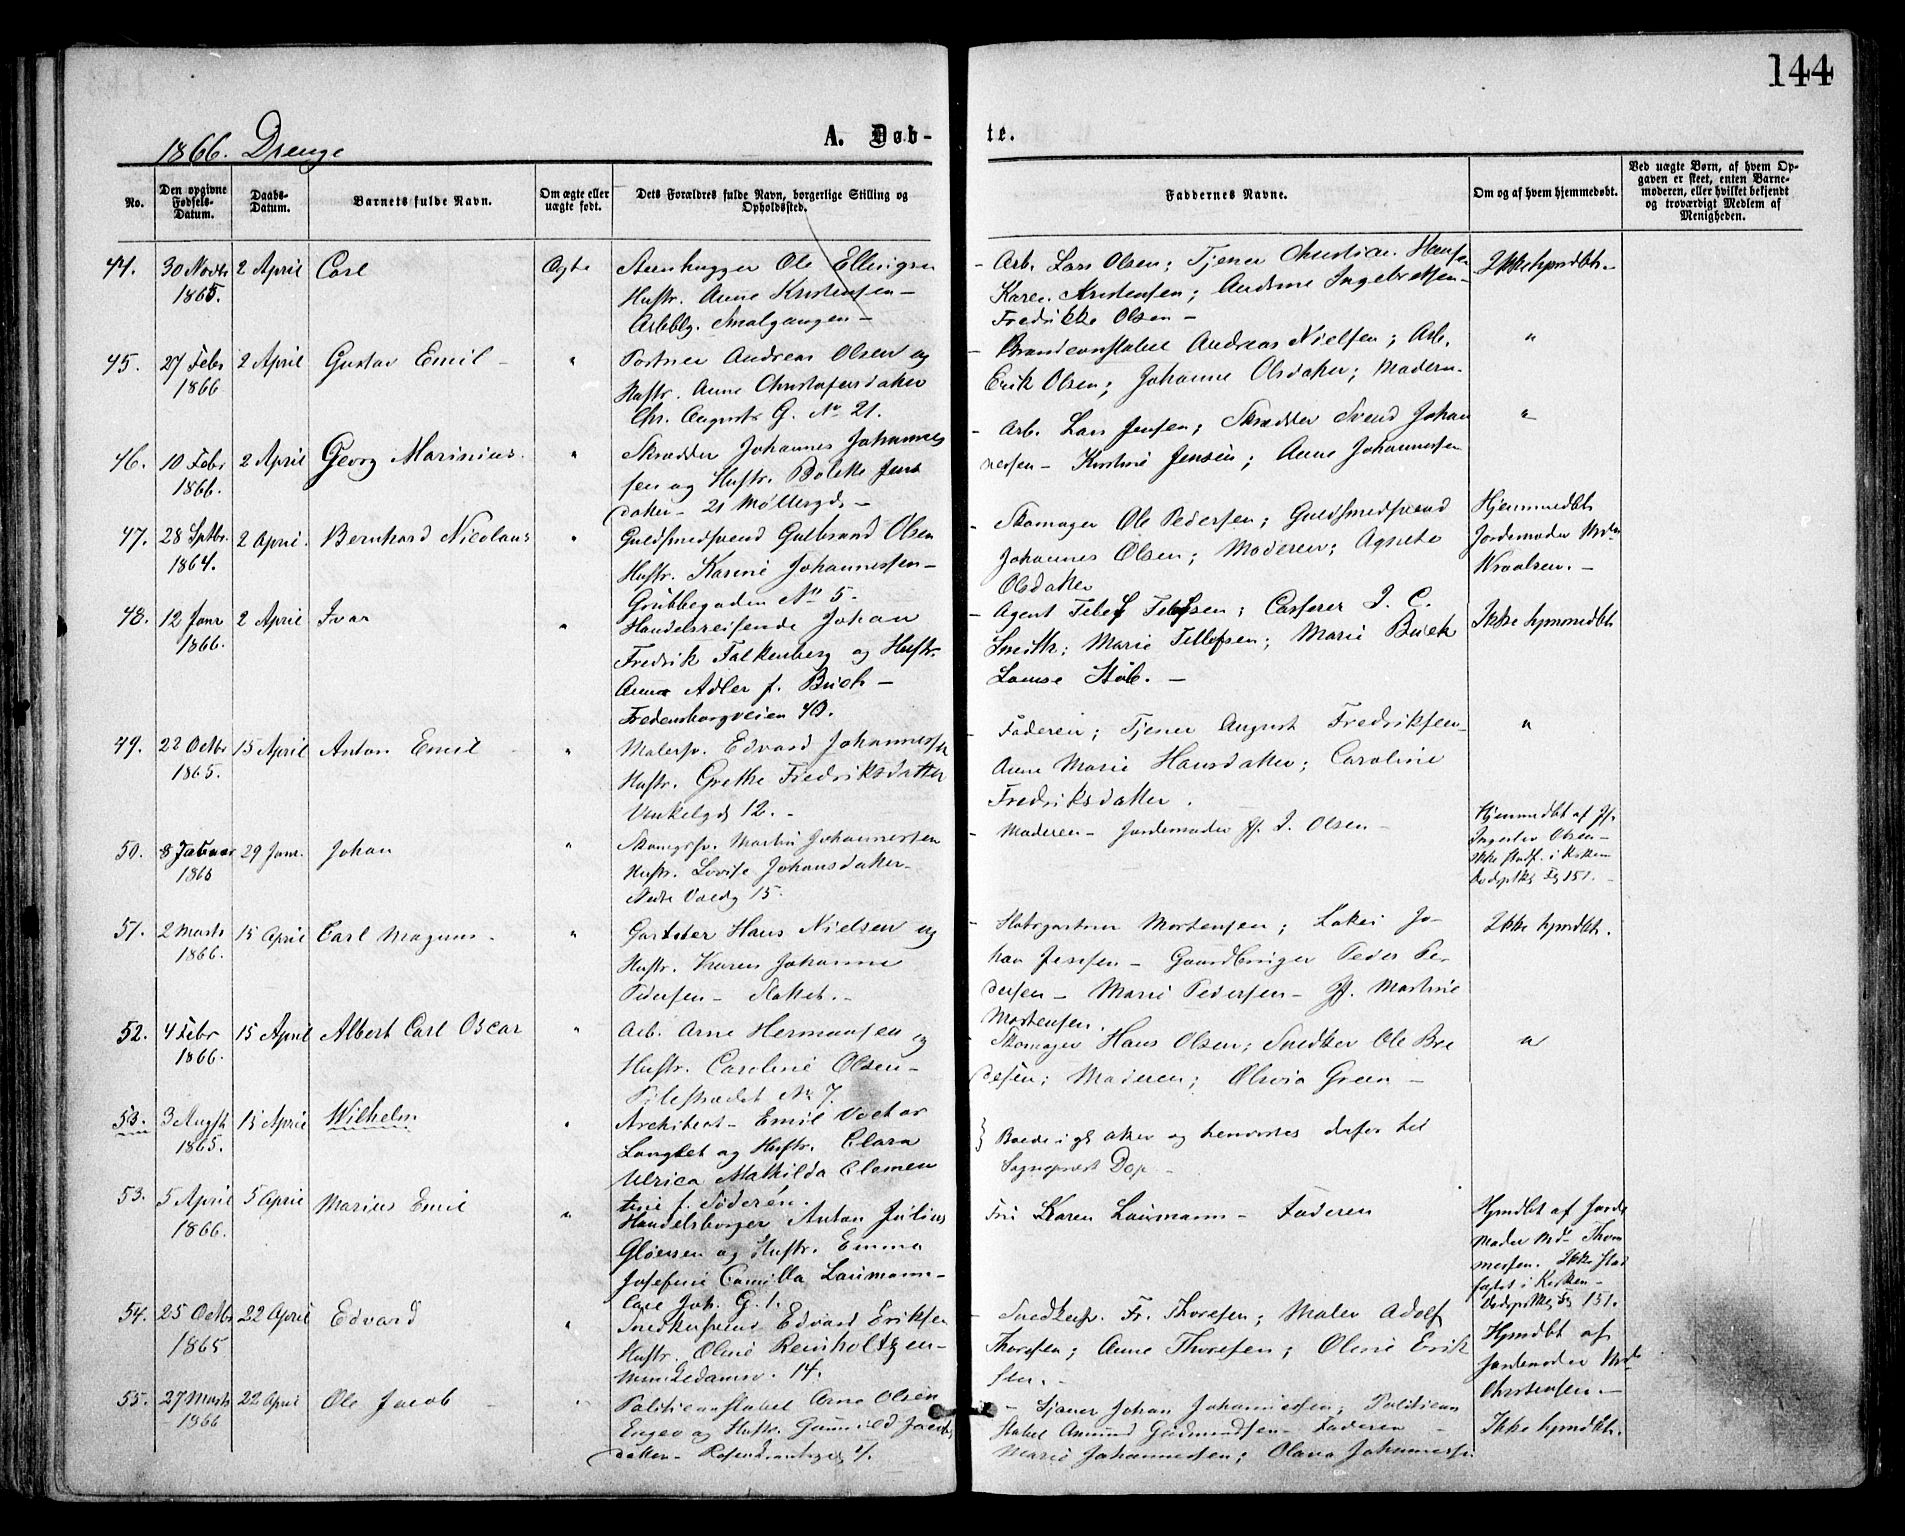 144
1866. Drenge
A. Døb-
te.
No.
Den opgivne Fødsels-Datum.
Daabs-Datum.
Barnets fulde Navn.
Om ægte eller uægte født.
Dets Forældres fulde Navn, borgerlige Stilling og Opholdssted.
Faddernes Navne.
Om og af hvem hjemmedøbt.
Ved uægte Børn, af hvem Op-
gaven er skeet, enten Barne-
moderen, eller hvilket bekjendt
og troværdigt Medlem af
Menigheden.
44. 30 Novbr 2 April Carl Ægte Stenhugger Ole Ellingsen
1865. Hustr. Anne Kristensen –
Arbbg. Smalgangen –
– Arb. Lars Olsen; Tjener Christian Hansen
Karen Kristensen; Andrine Ingebretsen –
Fredrikke Olsen –
Ikke hjmdbt.
45. 27 Febr 2 April Gustav Emil – " Portner Andreas Olsen og
1866 Hustr. Anne Christofersdatter
Chr. Augusts G. No 21.
– Brandconstabel Andreas Nielsen; Arb.
Erik Olsen; Johanne Olsdatter; Moderen.
"
46. 10 Febr 2 April Georg Marinius. " Skrædder Johannes Johannes
1866. sen og Hustr. Bolette Jens
datter – 21 Møllergd. –
– Arb. Lars Jensen; Skrædder Svend Johan
nesen – Kristine Jensen; Anne Johannessen
"
47. 28 Sptbr. 2 April. Bernhard Nicolaus " Guldsmedsvend Gulbrand Olsen
1864. Hustr. Karine Johannessen –
Grubbegaden No 5.
– Skomager Ole Pedersen; Guldsmedsvend
Johannes Olsen; Moderen; Agnete
Olsdatter
Hjemmedbt
Jordemoder Md
Wraalsen. –
48. 12 Janr 2 April Ivar " Handelsreisende Johan
1866. Fredrik Falkenberg og Hustr.
Anna Adler f. Buch –
Fredensborgveien 40.
– Agent Tellef Tellefsen; Casserer J. C.
Smith; Marie Tellefsen; Marie Buch
Louise Støb. –
Ikke hjemmedbt
49. 22 Octbr 15 April Anton Emil – " Malersv. Edvard Johannessen
1865. Hustr. Grethe Fredriksdatter
Vinkelgd 12. –
– Faderen; Tjener August Fredriksen –
Anne Marie Hansdatter; Caroline
Fredriksdatter.
"
50. 8 Januar 29 Janr. Johan " Skomgsv. Martin Johannessen
1866 Hustr. Lovise Johansdatter –
Nedre Voldg 15.
– Moderen – Jordemoder Jf. I. Olsen –
Hjemmedbt af Jf.
Ingeslev Olsen –
ikke stadf. i Kirken
Dødsptk Fg 151. –
51. 2 Marts 15 April Carl Magnus – " Gartner Hans Nielsen og
1866. Hustr. Karen Johanne
Pedersen – Slottet. –
– Slotsgartner Mortensen; Lakei Jo-
han Jensen – Gaardbruger Peder Pe-
dersen – Marie Pedersen – Jf. Martine
Mortensen.
Ikke hjmdbt.
52. 4 Febr 15 April Albert Carl Oscar " Arb. Arne Hermansen og
1866. Hustr. Caroline Olsen –
Pilestrædet No 7.
– Skomager Hans Olsen; Snedker Ole Bre
desen; Moderen; Olivia Green –
"
53. 3 Augst 15 April Wilhelm " Architect – Emil Victor
1865. Langlet og Hustr. Clara
Ulrica Mathilda Clemen
tine f. Söderén.
} Boede i gl. aker og henvistes derfor til
Sogneprest Dop –
53. 5 April 5 April Marius Emil " Handelsborger Anton Julius
1866. Gløersen og Hustr. Emma
Josefine Camilla Laumann –
Carl Joh. G. 1.
Frü Karen Laumann – Faderen
Hjmdbt af Jorde
moder Md Thom
mesen. Ikke stad
fæstet i Kirken –
Dødsptk Fg 151.
54. 25 Octbr 22 April Edvard " Snedkersvend Edvard Eriksen
1865 Hustr. Oline Reinholtzen –
Munkedamsv. 14.
– Snedkersv. Fr. Thoresen; Maler Adolf
Thoresen; Anne Thoresen; Oline Erik
sen. –
Hjmdbt af
Jordemoder Md
Christensen. –
55. 27 Marts 22 April Ole Jacob – " Politiconstabel Arne Olsen
1866 Enger og Hustr. Gunnild Jacobs
datter – Rosenkrantzgd 4.
– Tjener Johan Johannessen; Politicon
stabel Amund Gudmundsen – Faderen –
Marie Johannessen; Olava Johannessen
Ikke hjmdbt.